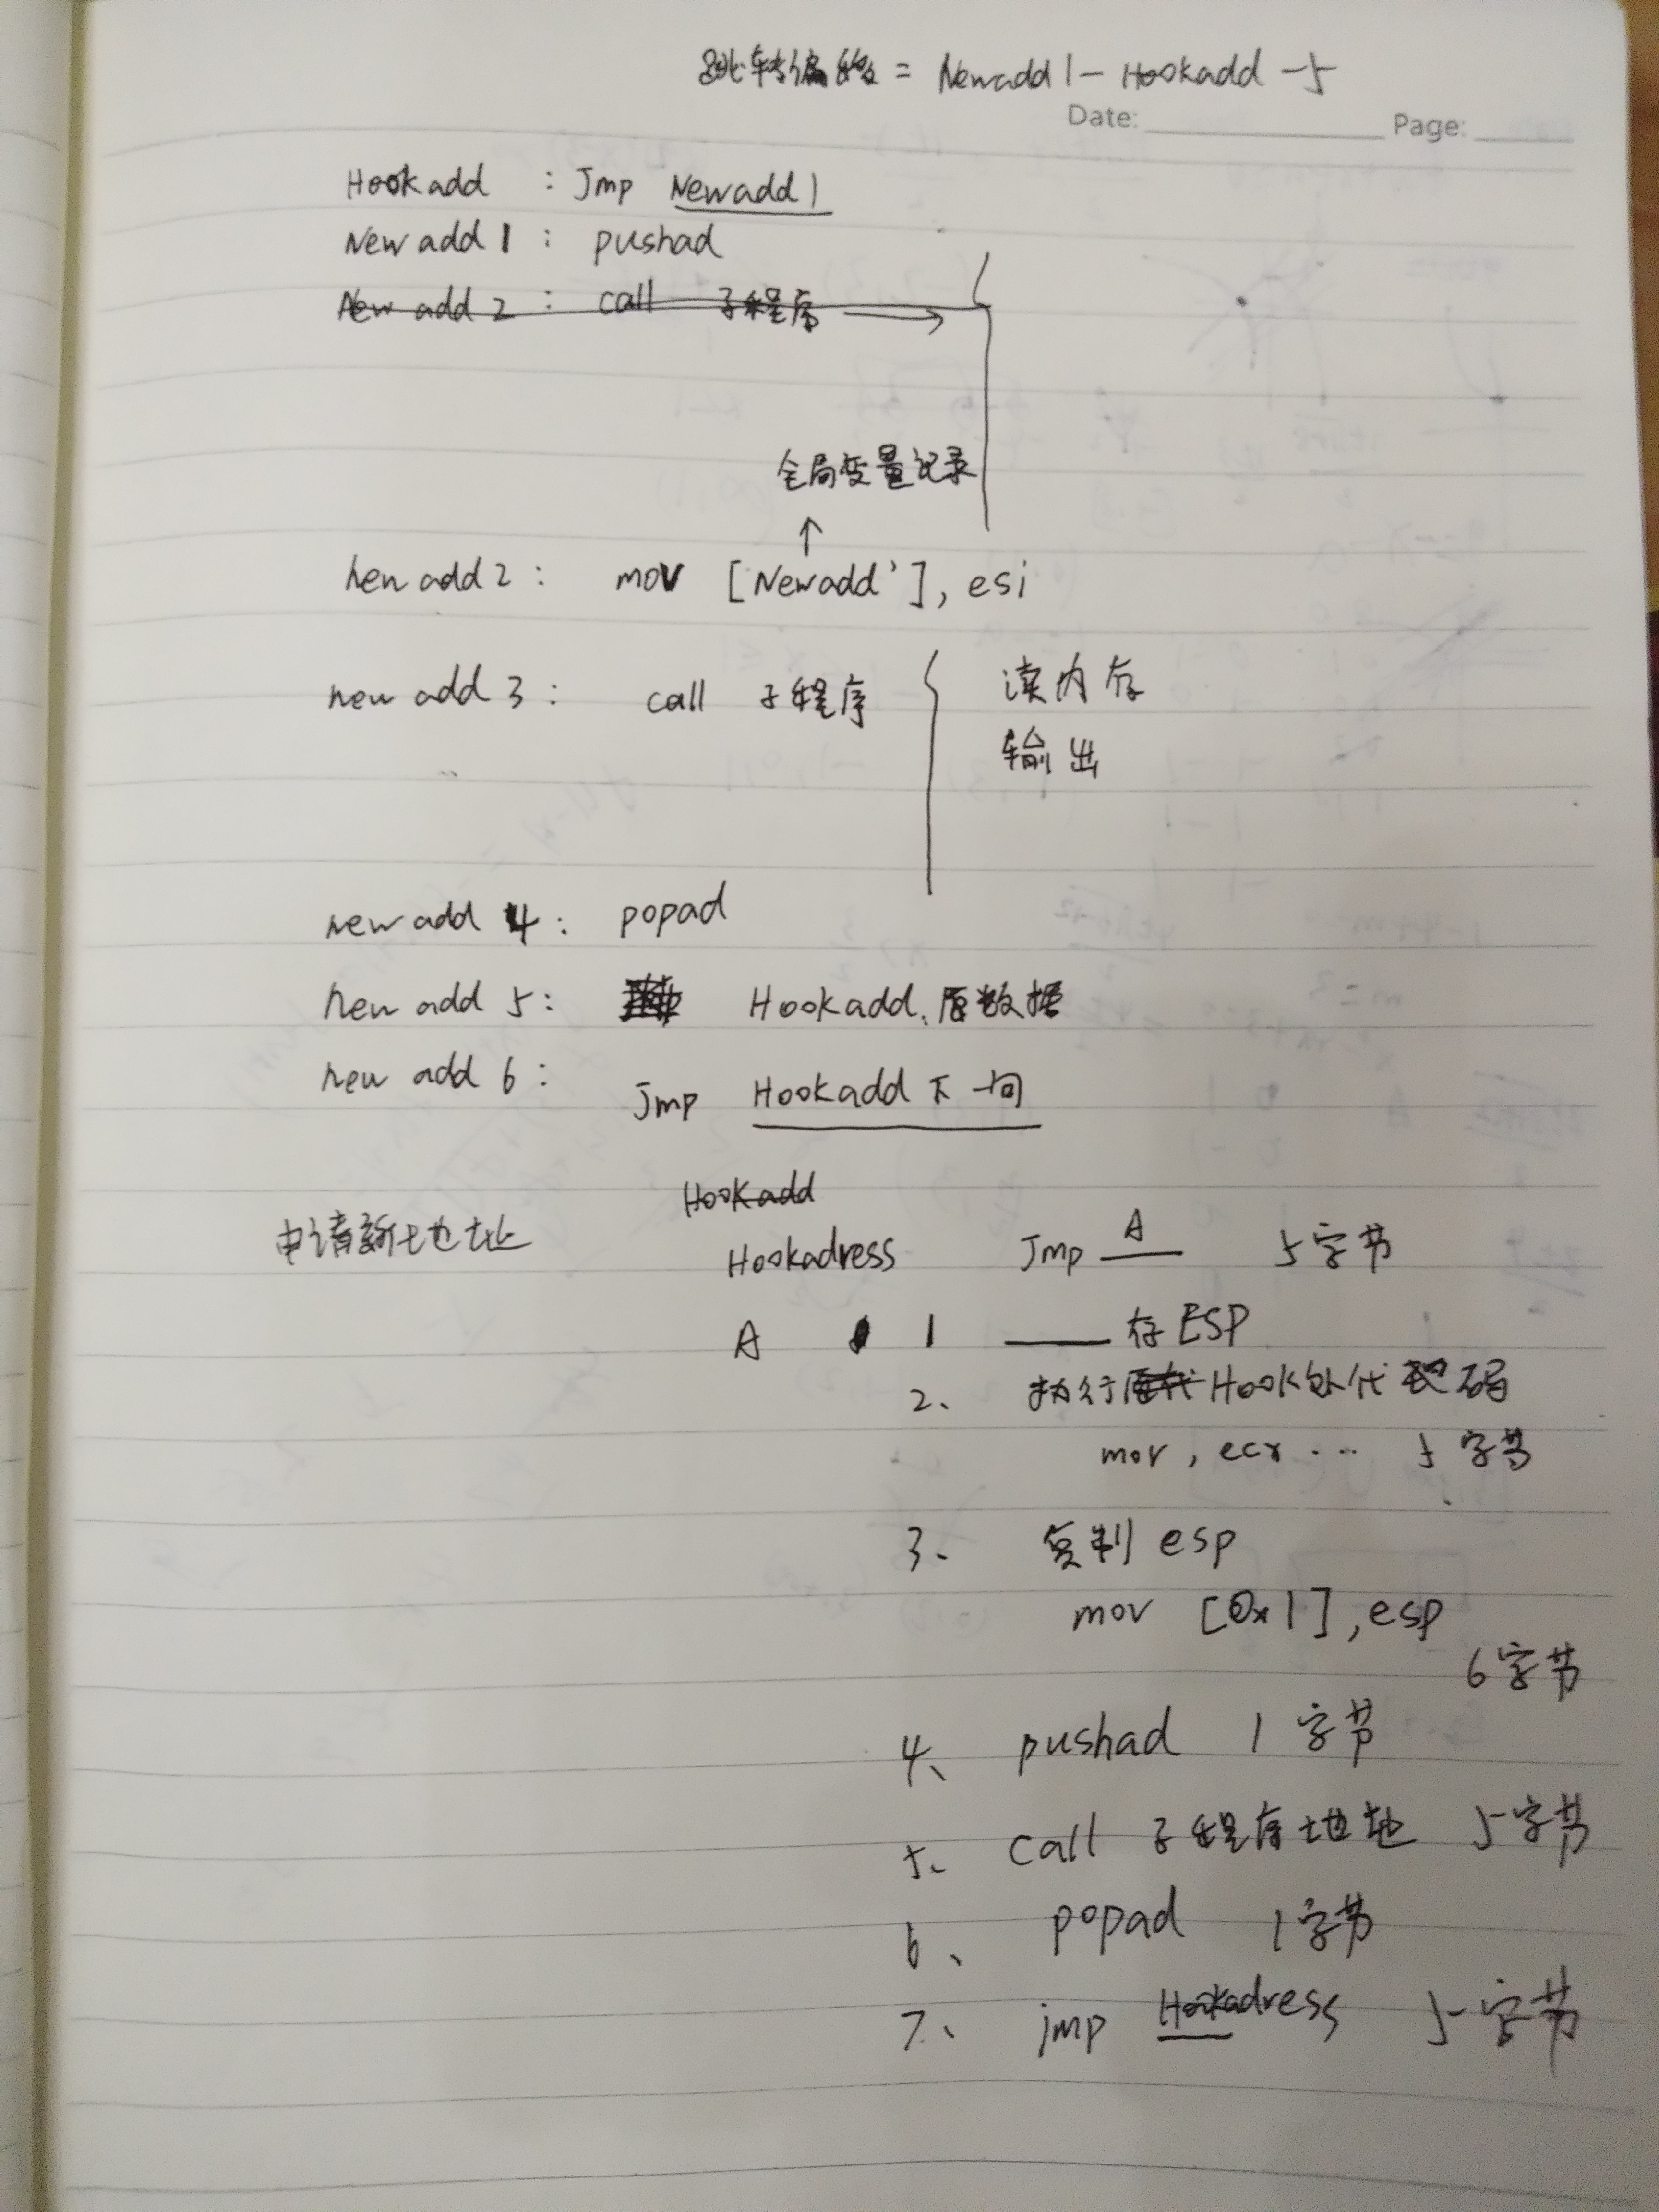 跳转偏移 = Newadd1 - Hookadd - 5
Date: Page:
Hookadd : Jmp Newadd1
New add 1 : pushad
New add 2 : call 子程序 →
全局变量记录
↑
new add 2 : mov [Newadd'], esi
new add 3 : call 子程序 读内存
输出
new add 4 : popad
new add 5 : Hookadd 原数据
new add 6 :
Jmp Hookadd 下一句
Hookadd
申请新地址 Hookadress Jmp A 5字节
A 1 存 ESP
2、 执行 Hook处代码
mov , ecx ... 5字节
3、 复制 esp
mov [0x1], esp
6字节
4、 pushad 1字节
5、 call 子程序地址 5字节
6、 popad 1字节
7、 jmp Hookadress 5字节